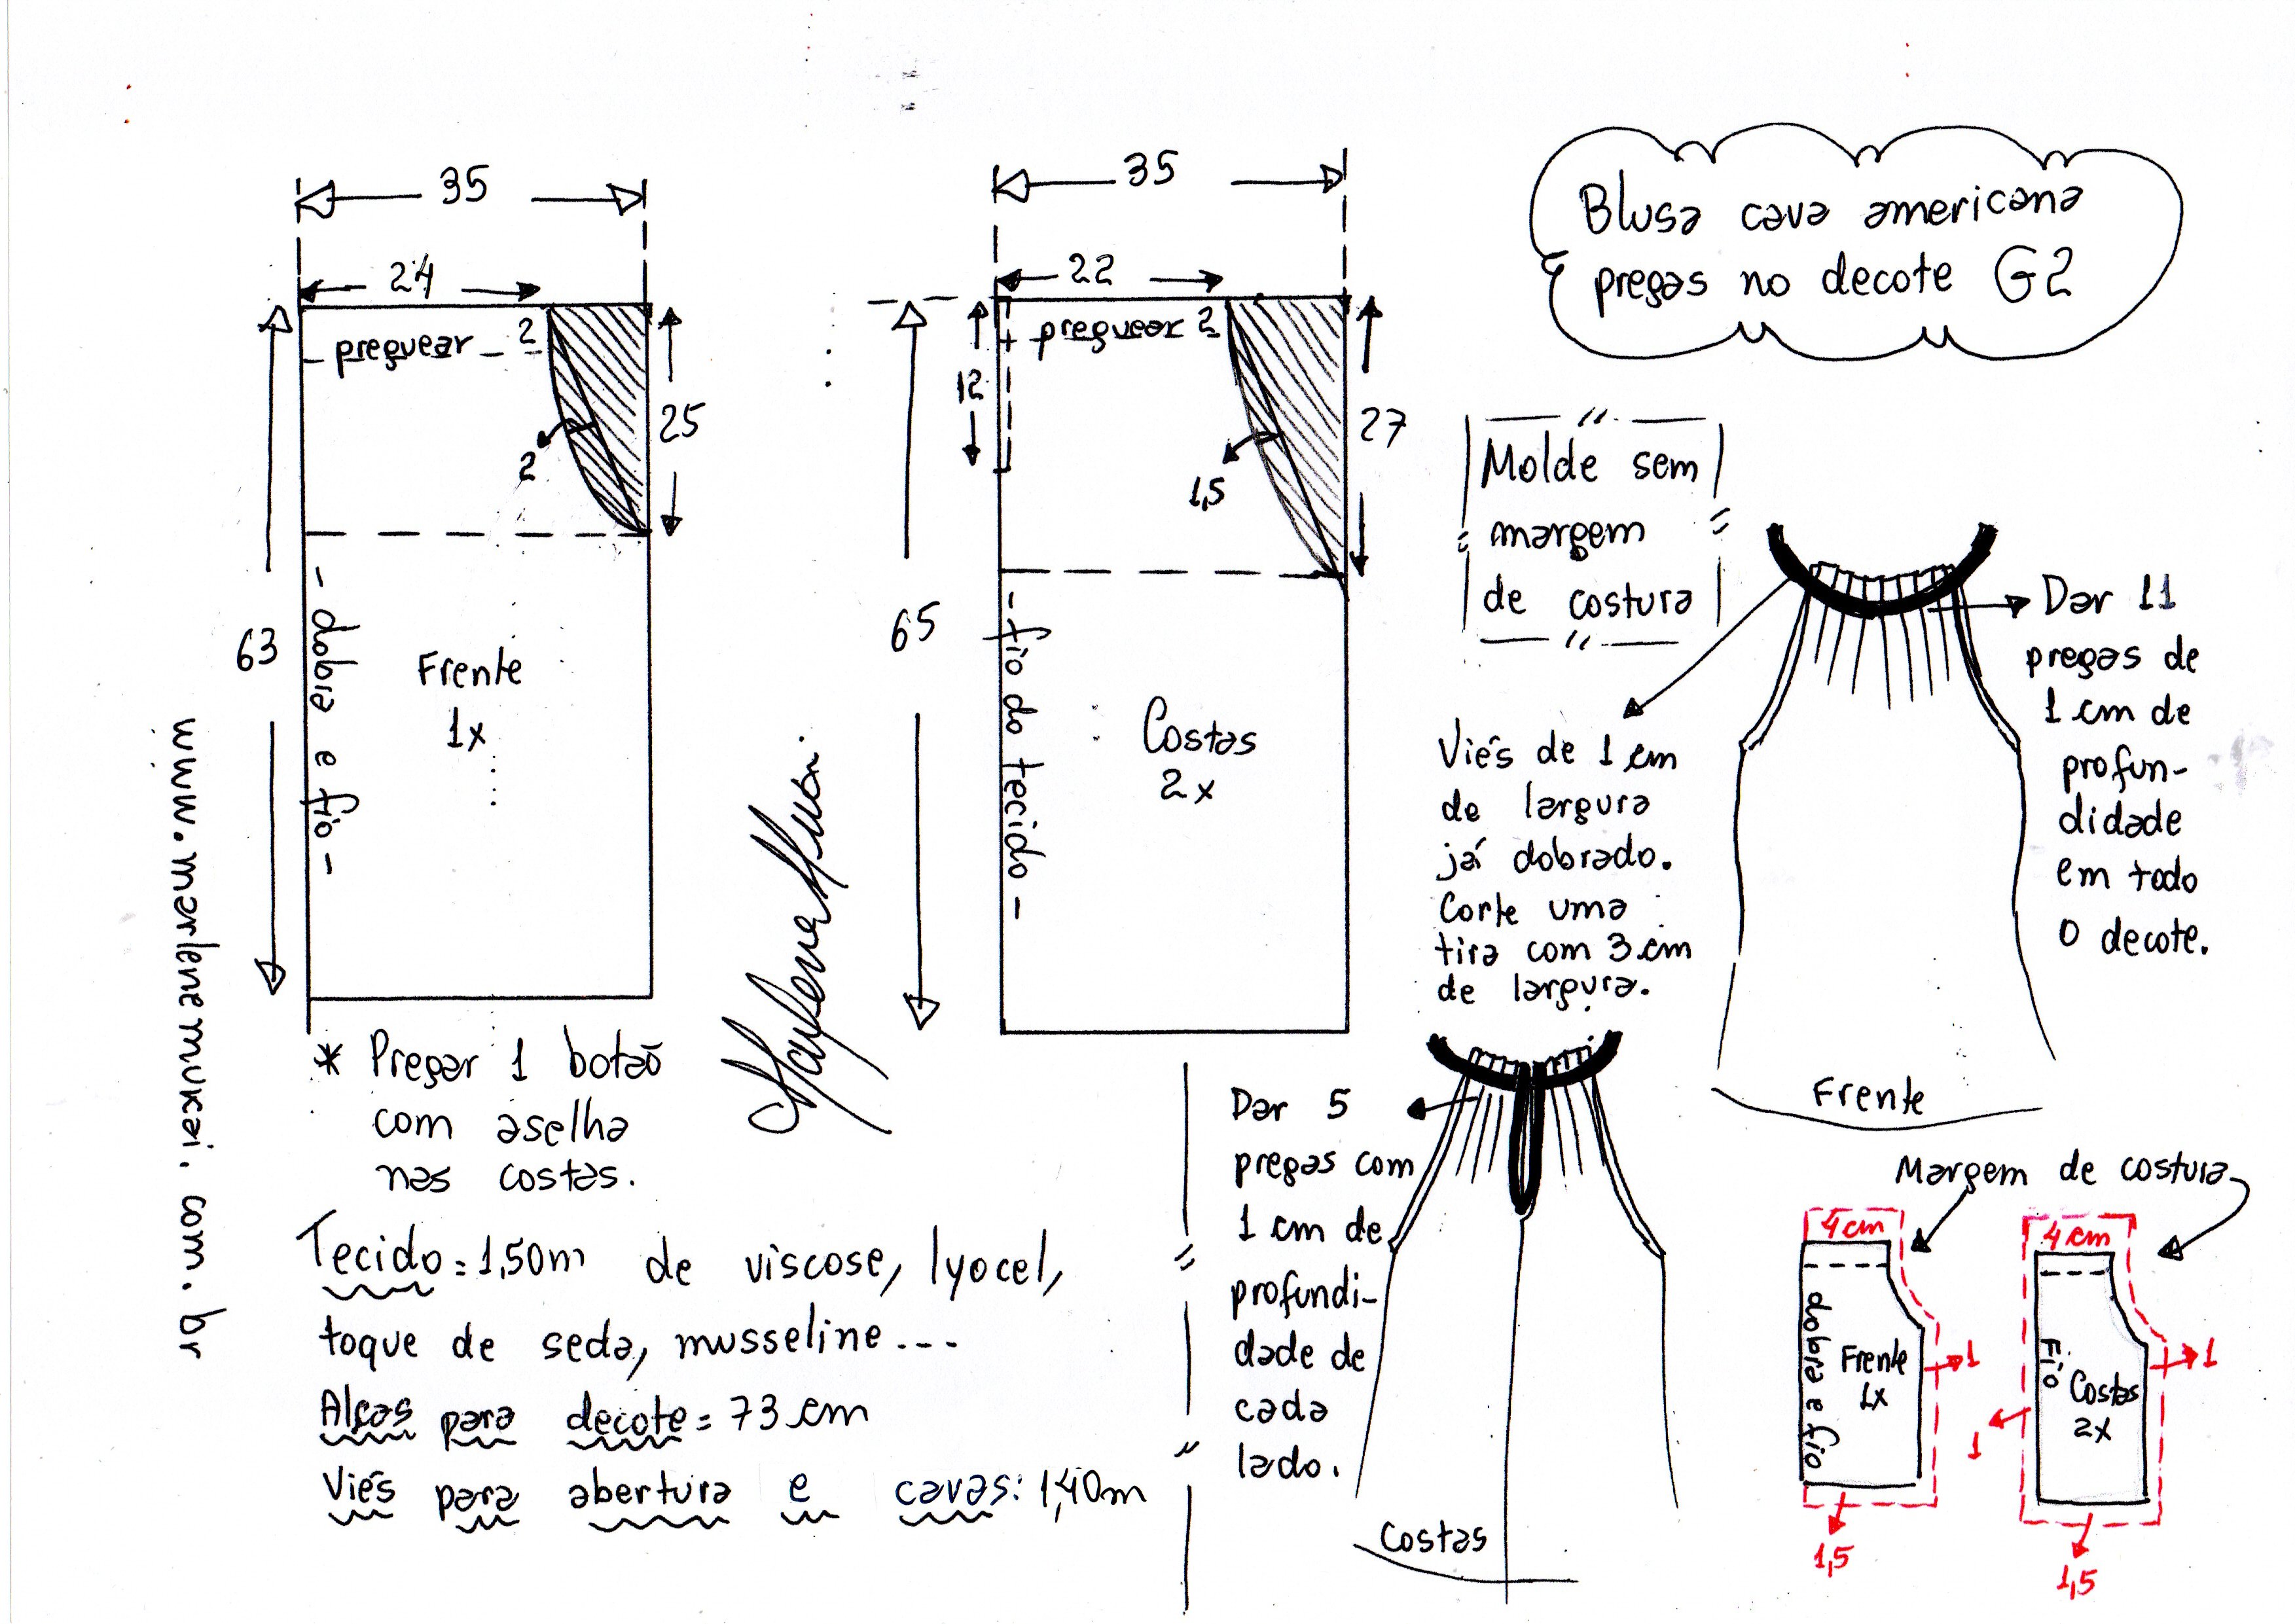 35
24
preguear
2
2
25
63
- dobra e fio -
Frente
1x
35
22
preguear
2
12
1,5
27
65
- fio do tecido -
Costas
2x
Blusa cava americana
pregas no decote G2
Molde sem
margem
de costura
Dar 11
pregas de
1 cm de
profun-
didade
em todo
o decote.
Viés de 1 cm
de largura
já dobrado.
Corte uma
tira com 3 cm
de largura.
Frente
www.marlenemukai.com.br
Marlene Mukai
* Pregar 1 botão
com aselha
nas costas.
Tecido = 1,50m de viscose, lyocel,
toque de seda, musseline...
Alças para decote = 73 cm
Viés para abertura e cavas: 1,40m
Dar 5
pregas com
1 cm de
profundi-
dade de
cada
lado.
Costas
Margem de costura
4 cm
dobra e fio
Frente
1x
1
1,5
4 cm
Fio
Costas
2x
1
1
1,5